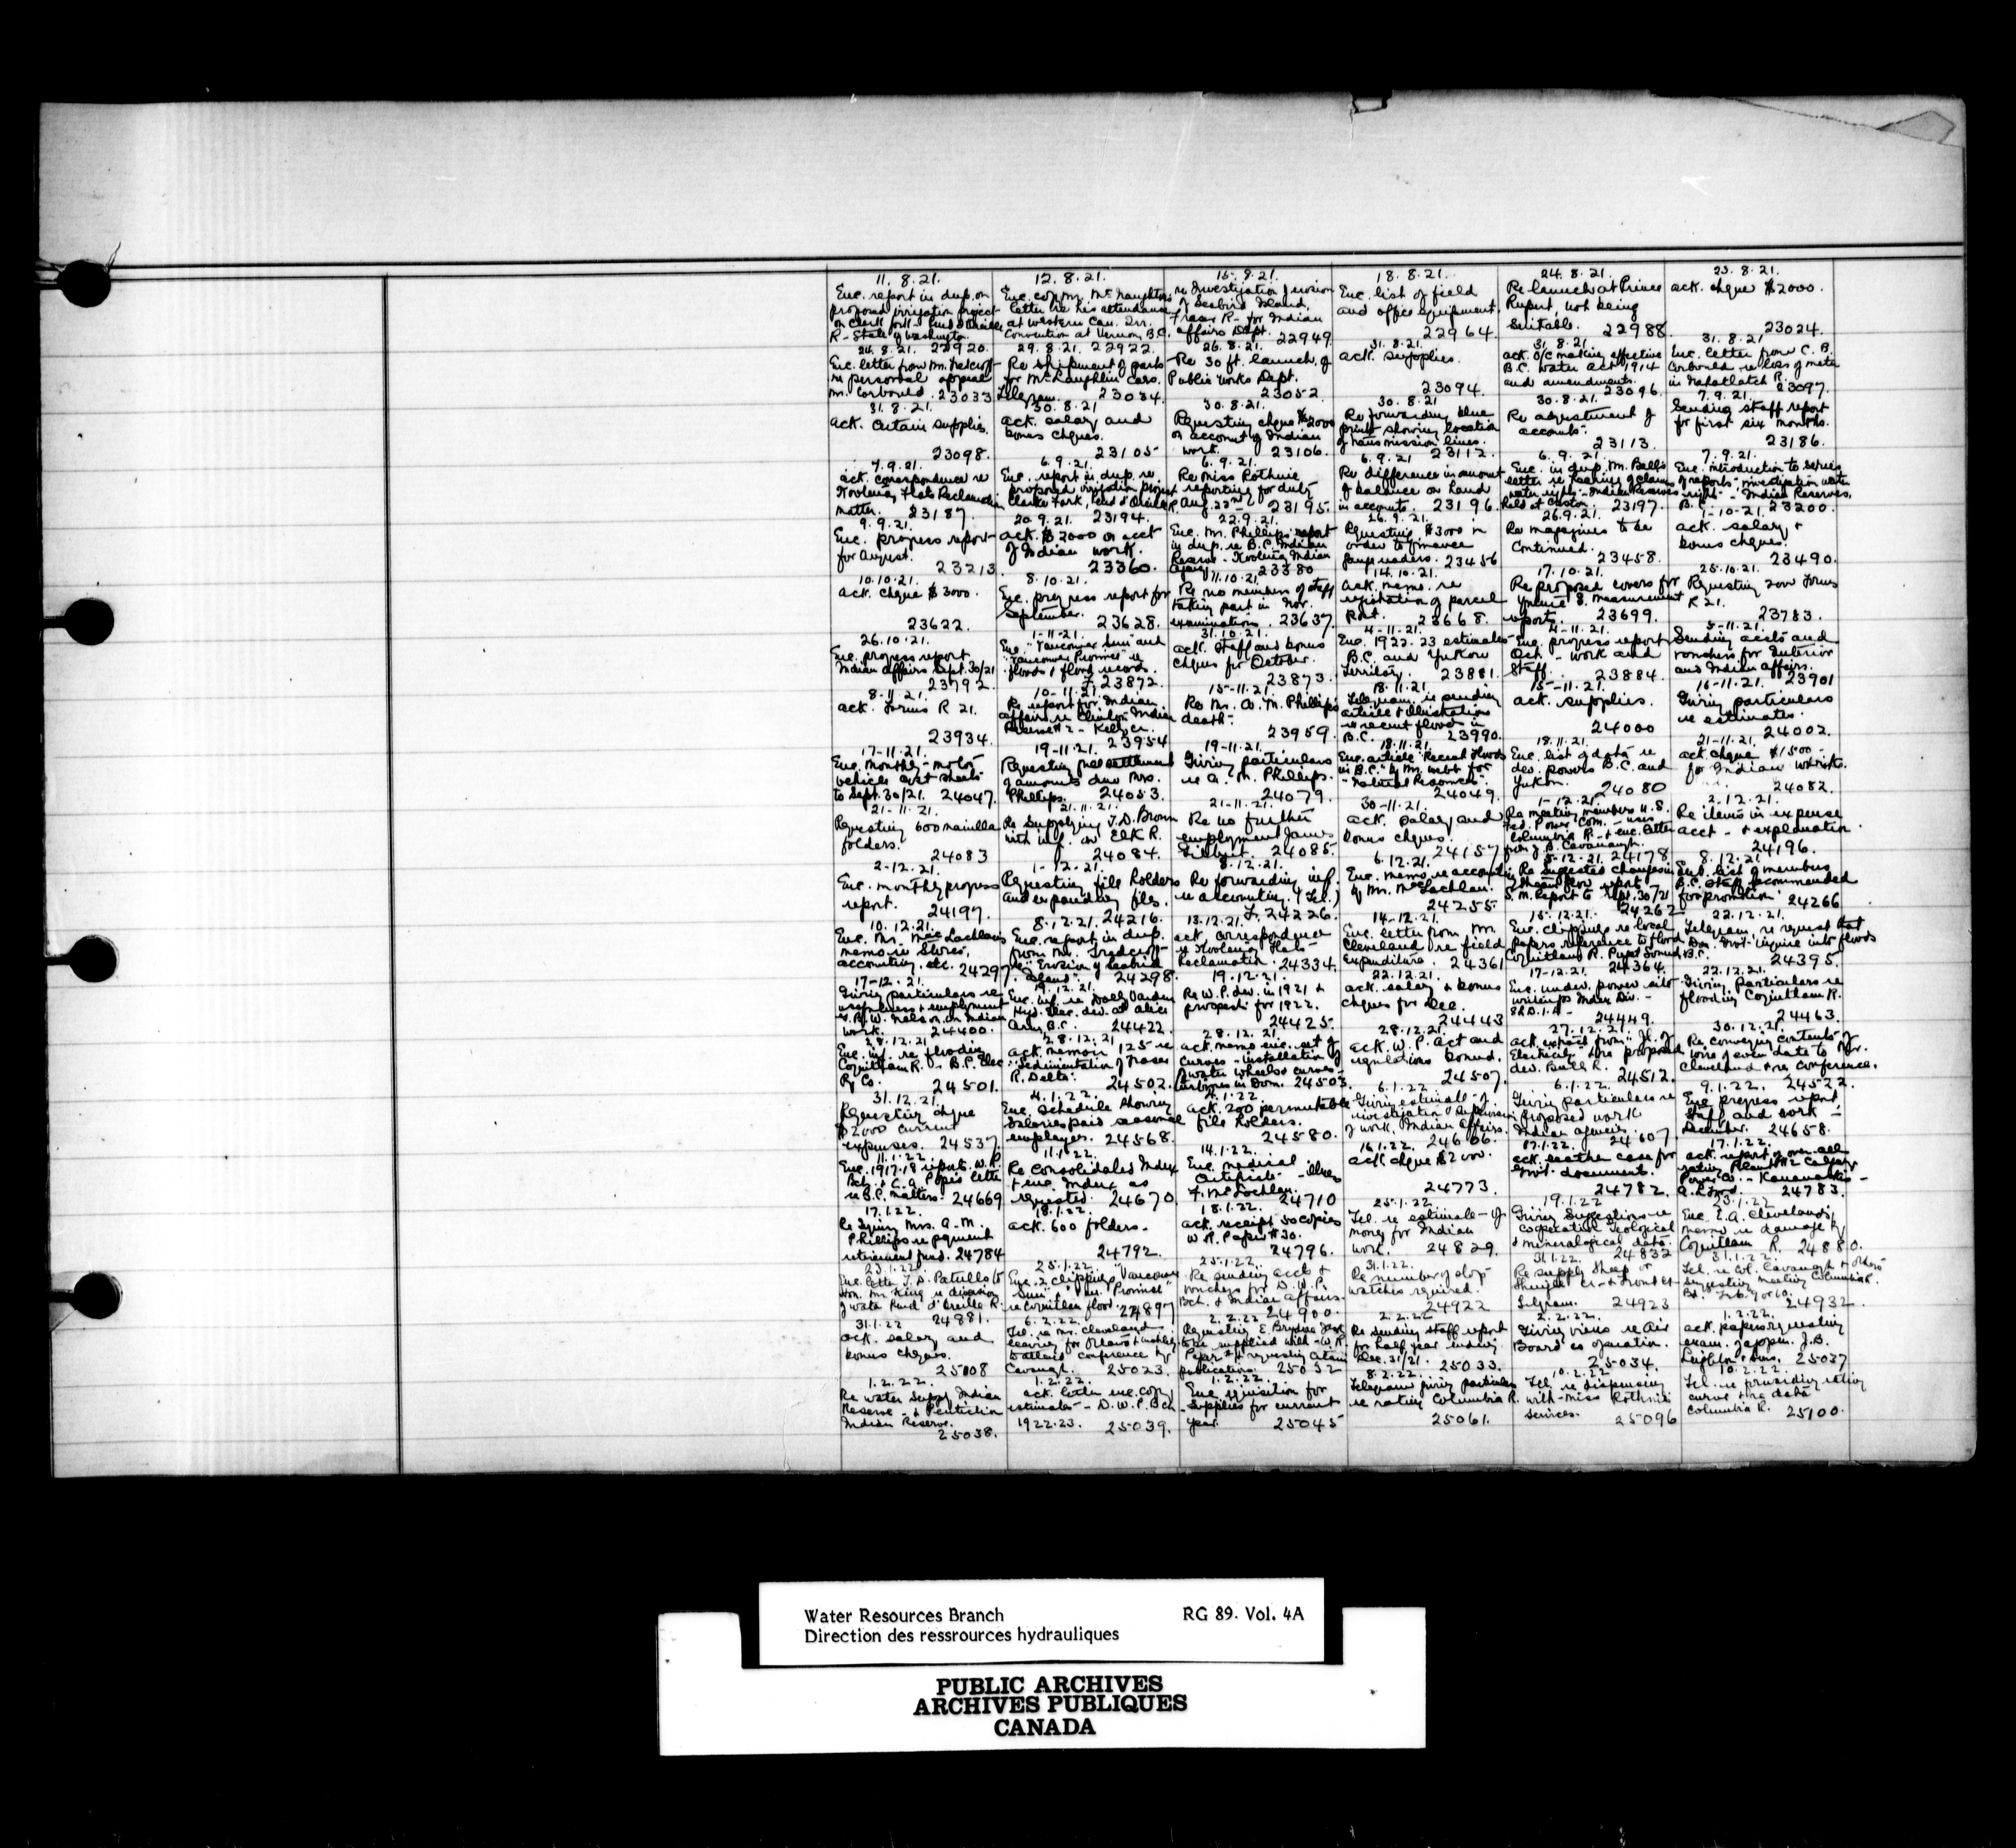 11.8.21.
Enc. report in dup. on
proposed irrigation project
on Clark Fork - Pend d'Oreille
R - State of Washington.
22920.
12.8.21.
Enc. copy Mr. McNaughton's
letter re his attendance
at Western Can. Irr.
Convention at Vernon B.C.
22922.
15.8.21.
re Investigation of erosion
of Seabird Island,
Fraser R - for Indian
affairs Dept. 22949
18.8.21.
Enc. list of field
and office equipment.
22964.
24.8.21.
Re launch at Prince
Rupert, not being
suitable. 22988
23.8.21.
ack. cheque $2000.
23024.
26.8.21.
Enc. letter from Mr.
re personal appeal
Mr. Corbould. 23033
29.8.21.
Re shipment of parts
for McLaughlin cars.
Telegram. 23034.
26.8.21.
Re 30 ft. launch of
Public Works Dept.
23052.
31.8.21.
ack. supplies.
23094.
31.8.21.
ack. O/C making effective
B.C. Water act 1914
and amendments.
23096.
31.8.21
Enc. letter from C.B.
Corbould re loss of meter
in Nahatlatch R.
23097.
31.8.21.
ack. certain supplies.
23098.
30.8.21
ack. salary and
bonus cheques.
23105
30.8.21.
Requesting cheque $2000
on account of Indian
work. 23106.
30.8.21
Re forwarding blue
print showing location
of transmission lines.
23112.
30.8.21.
Re adjustment of
accounts.
23113.
7.9.21.
Sending staff report
for first six months.
23186.
7.9.21.
ack. correspondence re
Kootenay Flats Reclamation
matter. 23187.
6.9.21.
Enc. report in dup. re
proposed irrigation project
Clarke Fork, Pend d'Oreille R
23194.
6.9.21.
Re Miss Rothnie
reporting for duty
Aug. 22nd 23195.
6.9.21
Re difference in amount
of balance on hand
in accounts. 23196.
6.9.21.
Enc. in dup. Mr. Bell's
letter re hearing of claims
water rights - Indian Reserves
held at Castor. 23197.
7.9.21.
Enc. introduction to series
of reports - investigation water
right - Indian Reserves,
B.C. 23200.
9.9.21.
Enc. progress report
for August.
23213
20.9.21.
ack. $2000 on acct
of Indian work.
23360.
22.9.21.
Enc. Mr. Phillips report
in dup. re B.C. Indian
Reserve - Kootenay Indian
Agency 23380
26.9.21.
Requesting $3000 in
order to finance
gauge readers. 23456
26.9.21.
Re magazines to be
continued.
23458.
1-10-21.
ack. salary &
bonus cheques.
23490.
10.10.21.
ack. cheque $3000.
23622.
8.10.21.
Enc. progress report for
September. 23628.
11.10.21.
Re no members of staff
taking part in Nov.
examinations. 23637.
14.10.21.
ack. memo. re
registration of parcel
Post. 23668.
17.10.21.
Re proposed covers for
S. measurement
reports. 23699.
25.10.21.
Requesting 2000 forms
R 21.
23783.
26.10.21.
Enc. progress report
Indian affairs Sept. 30/21
23792.
1-11-21.
Enc. "Vancouver Sun" and
"Vancouver Province" re
floods & flood records.
23872.
31.10.21.
ack. staff and bonus
cheques for October.
23873.
4-11-21.
Enc. 1922-23 estimates
B.C. and Yukon
Territory. 23881.
4-11-21.
Enc. progress report
Oct. - work and
staff. 23884.
5-11-21.
Sending accts and
vouchers for Interior
and Indian affairs.
23901
8-11-21.
ack. forms R 21.
23934.
10-11-21.
Re report for Indian
affairs re Clinton Indian
Reserve # 2 - Kelly Cr.
23954
15-11-21.
Re Mr. A. M. Phillips
death.
23959.
18.11.21.
Telegram. re sending
article & illustrations
re recent floods in
B.C. 23990.
15-11-21.
ack. supplies.
24000
16-11-21.
Giving particulars
re estimates.
24002.
17-11-21.
Enc. monthly motor
vehicle cost sheets
to Sept. 30/21. 24047.
19-11-21.
Requesting settlement
of amounts due Mrs.
Phillips. 24053.
19-11-21.
Giving particulars
re A. M. Phillips.
24079.
18.11.21.
Enc. article "Recent floods
in B.C." by Mr. Webb for
"Natural Resources".
24049.
18.11.21.
Enc. list of data re
dev. powers B.C. and
Yukon. 24080
21-11-21.
ack. cheque $1500
for Indian work.
24082.
21-11-21.
Requesting 600 manilla
folders.
24083
21.11.21.
Re supplying J.D. Brown
with inf. on Elk R.
24084.
21-11-21.
Re no further
employment James
Gilbert. 24085.
30-11-21.
ack. salary and
bonus cheques.
24157
1-12-21.
Re meeting members U.S.
Fed. Power Com.
Columbia R. - & enc. letter
from J.B. Cavanaugh.
24178
2.12.21.
Re items in expense
acct - & explanation.
24196.
2-12.21.
Enc. monthly progress
report. 24197.
1-12-21.
Requesting file holders
and expanding files.
24216.
8-12-21.
Re forwarding inf.
re accounting. (Tel.)
24226.
6.12.21.
Enc. memo re accounting
by Mr. MacLachlan.
24255
5-12-21.
Re suggested changes in
stream flow report -
S.M. Report to Sept. 30/21
24262
8.12.21
Enc. list of members
B.C. staff recommended
for promotion 24266
10.12.21.
Enc. Mr. MacLachlan's
memo re stores,
accounting, etc. 24297
8.12.21.
Enc. report in dup.
from Mr.
re "Erosion of Seabird
Island" 24298.
13.12.21.
ack. correspondence
re Kootenay Flats
Reclamation. 24334.
14-12.21.
Enc. letter from Mr.
Cleveland re field
expenditure. 24361
15.12.21.
Enc. clippings re local
papers reference to flood
Coquitlam R. Puget Sound
24364.
22.12.21.
Telegram re request that
Dom. Govt. inquire into floods
B.C. 24395.
17-12.21.
Giving particulars re
usefulness & employment
R.W. Nelson on Indian
work. 24400.
19.12.21.
Enc. inf. re Dolly Varden
Hyd. Elec. dev. at Alice
Arm, B.C. 24422.
19.12.21.
Re W.P. dev. in 1921 &
prospects for 1922.
24425.
22.12.21.
ack. salary & bonus
cheques for Dec.
24443
17-12.21.
Enc. under. power site
writeups Index Div. -
24449.
22.12.21.
Giving particulars re
flooding Coquitlam R.
24463.
28.12.21
Enc. inf. re flooding
Coquitlam R. - B.C. Elec
Ry Co. 24501.
28.12.21
ack. memoir 125 re
"Sedimentation of Fraser
R. Delta". 24502.
28.12.21
ack. memo enc. set of
curves - installation of
water wheels & curves -
turbines in Dom. 24503.
28.12.21.
ack. W.P. Act and
regulations bound.
24507.
27.12.21.
ack. extract from "Jl. of
Electricity" re proposed
dev. Bull R. 24512.
30.12.21.
Re conveying contents of
wire of even date to Mr.
Cleveland & re conference.
24522.
31.12.21.
Requesting cheque
$2000 current
expenses. 24537.
4.1.22.
Enc. schedule showing
salaries paid seasonal
employees. 24568.
4.1.22.
ack. 200 permutable
file holders.
24580.
6.1.22
Giving estimate of
investigation & supervision
of work, Indian Affairs.
24606.
6.1.22.
Giving particulars re
proposed work
Indian agencies.
24607
9.1.22.
Enc. progress report
staff and work -
December. 24658.
11.1.22.
Enc. 1917-18 reports W.P.
Bch. & C.A. Pope's letter
re B.C. matters. 24669
11.1.22.
Re Consolidated Index
& enc. Index as
requested. 24670.
14.1.22.
Enc. medical
certificate - illness
F. McLachlan.
24710
16.1.22.
ack. cheque $2000.
24773.
17.1.22.
ack. leather case for
Govt. document.
24782.
17.1.22.
ack. report of over-all
rating Plant #2 Calgary
Power Co. - Kananaskis -
24783.
17.1.22.
Re Mrs. A.M.
Phillips re payment
retirement fund. 24784
18.1.22.
ack. 600 folders.
24792.
18.1.22.
ack. receipt 50 copies
W.R. Paper # 30.
24796.
25.1.22.
Tel. re estimate of
money for Indian
work. 24829.
19.1.22
Giving suggestions re
cooperation Geological
& mineralogical data.
24832
23.1.22
Enc. E.A. Cleveland's
memo re damage by
Coquitlam R. 24880.
23.1.22
Enc. letter T.D. Patullo to
Hon. Mr. King re diversion
of water Pend d'Oreille R.
24881.
25.1.22
Enc. 2 clippings "Vancouver
Sun" & "Van. Province"
re Coquitlam flood.
24897
25.1.22.
Re sending accts &
vouchers for D.W.P.
Bch. & Indian affairs.
24900.
31.1.22.
Re number of stop
watches required.
24922
31.1.22
Re supply
Telegram. 24923
31.1.22.
Tel. re Col. Cavanaugh & others
suggesting meeting Columbia R.
Bd. Feb. 9 or 10.
24932.
31.1.22
ack. salary and
bonus cheques.
25008
6.2.22.
Tel. re Mr. Cleveland
leaving for
to attend conference by
Cavanagh. 25023.
2.2.22
Requesting E. Brydone Jack
to be supplied with W.R.
Paper & requesting certain
publications. 25032
2.2.22
Re sending staff report
for half year ending
Dec. 31/21. 25033.
2.2.22.
Giving views re Air
Board co operation.
25034.
1.2.22.
ack. papers requesting
exam. of appln. J.B.
Leighton & Sons. 25037
1.2.22.
Re water supply Indian
Reserve - & Penticton
Indian Reserve.
25038.
1.2.22.
ack. letter enc. copy
estimates - D.W.P. Bch
1922-23. 25039.
1.2.22.
Enc. requisition for
supplies for current
year. 25045
8.2.22.
Telegram giving particulars
re rating Columbia R.
25061.
10.2.22.
Tel. re dispensing
with Miss Rothnie's
services. 25096
10.2.22.
Tel. re providing rating
curve & re data
Columbia R. 25100.
Water Resources Branch RG 89. Vol. 4A
Direction des ressrources hydrauliques
PUBLIC ARCHIVES
ARCHIVES PUBLIQUES
CANADA